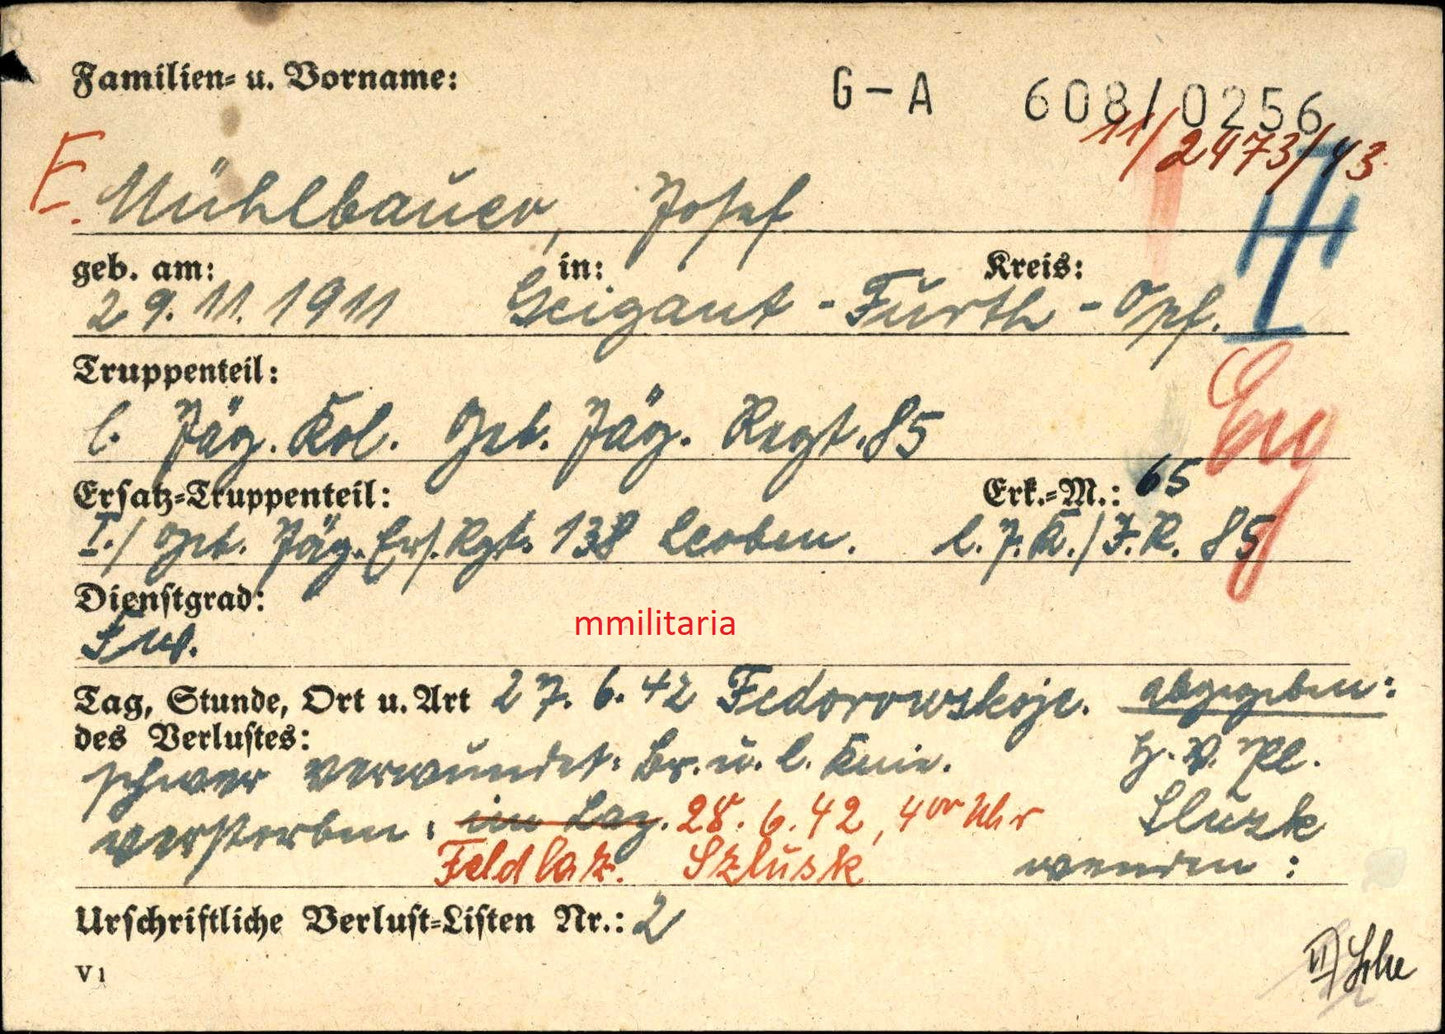 Familien- u. Vorname:
G-A 608/0256
11/2473/43
E. Mühlbauer, Josef
geb. am: in: Kreis:
29.11.1911 Geigant - Furth - Opf.
Truppenteil:
l. Jäg. Kol. Geb. Jäg. Regt. 85
Ersatz-Truppenteil: Erk.-M.: 65
I./ Geb. Jäg. Ers. Rgt. 138 Leoben. l. J. K./J.R. 85
Dienstgrad:
Fw.
mmilitaria
Tag, Stunde, Ort u. Art 27.6.42 Fedorowskoje. abgegeben:
des Verlustes:
schwer verwundet: Br. u. l. Knie. H.V.Pl.
verstorben: im Laz. 28.6.42, 4⁰⁰ Uhr Sluzk
Feldlaz. Szlusk wenden:
Urschriftliche Verlust-Listen Nr.: 2
V1